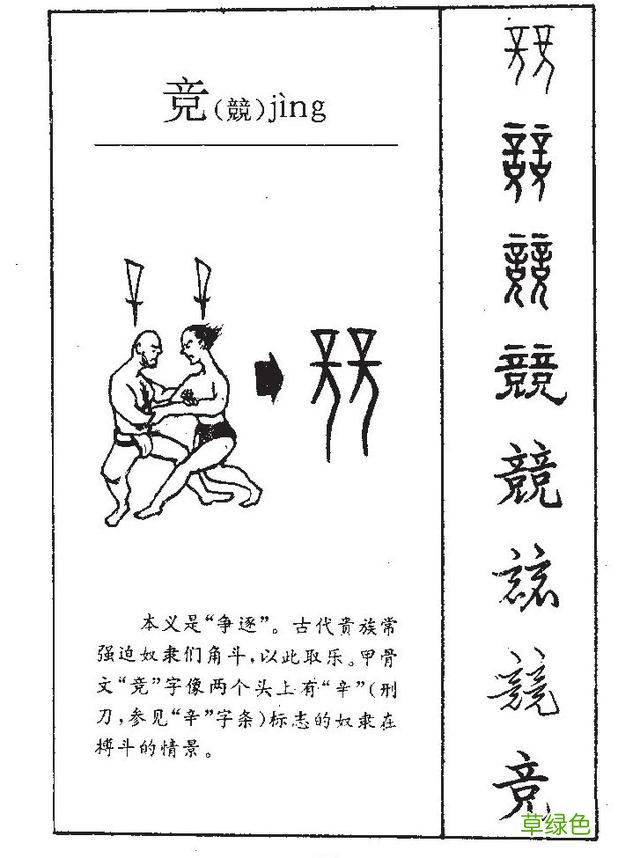 竞(競)jìng
本义是“争逐”。古代贵族常
强迫奴隶们角斗,以此取乐。甲骨
文“竞”字像两个头上有“辛”(刑
刀,参见“辛”字条)标志的奴隶在
搏斗的情景。
競
競
競
竞
草绿色